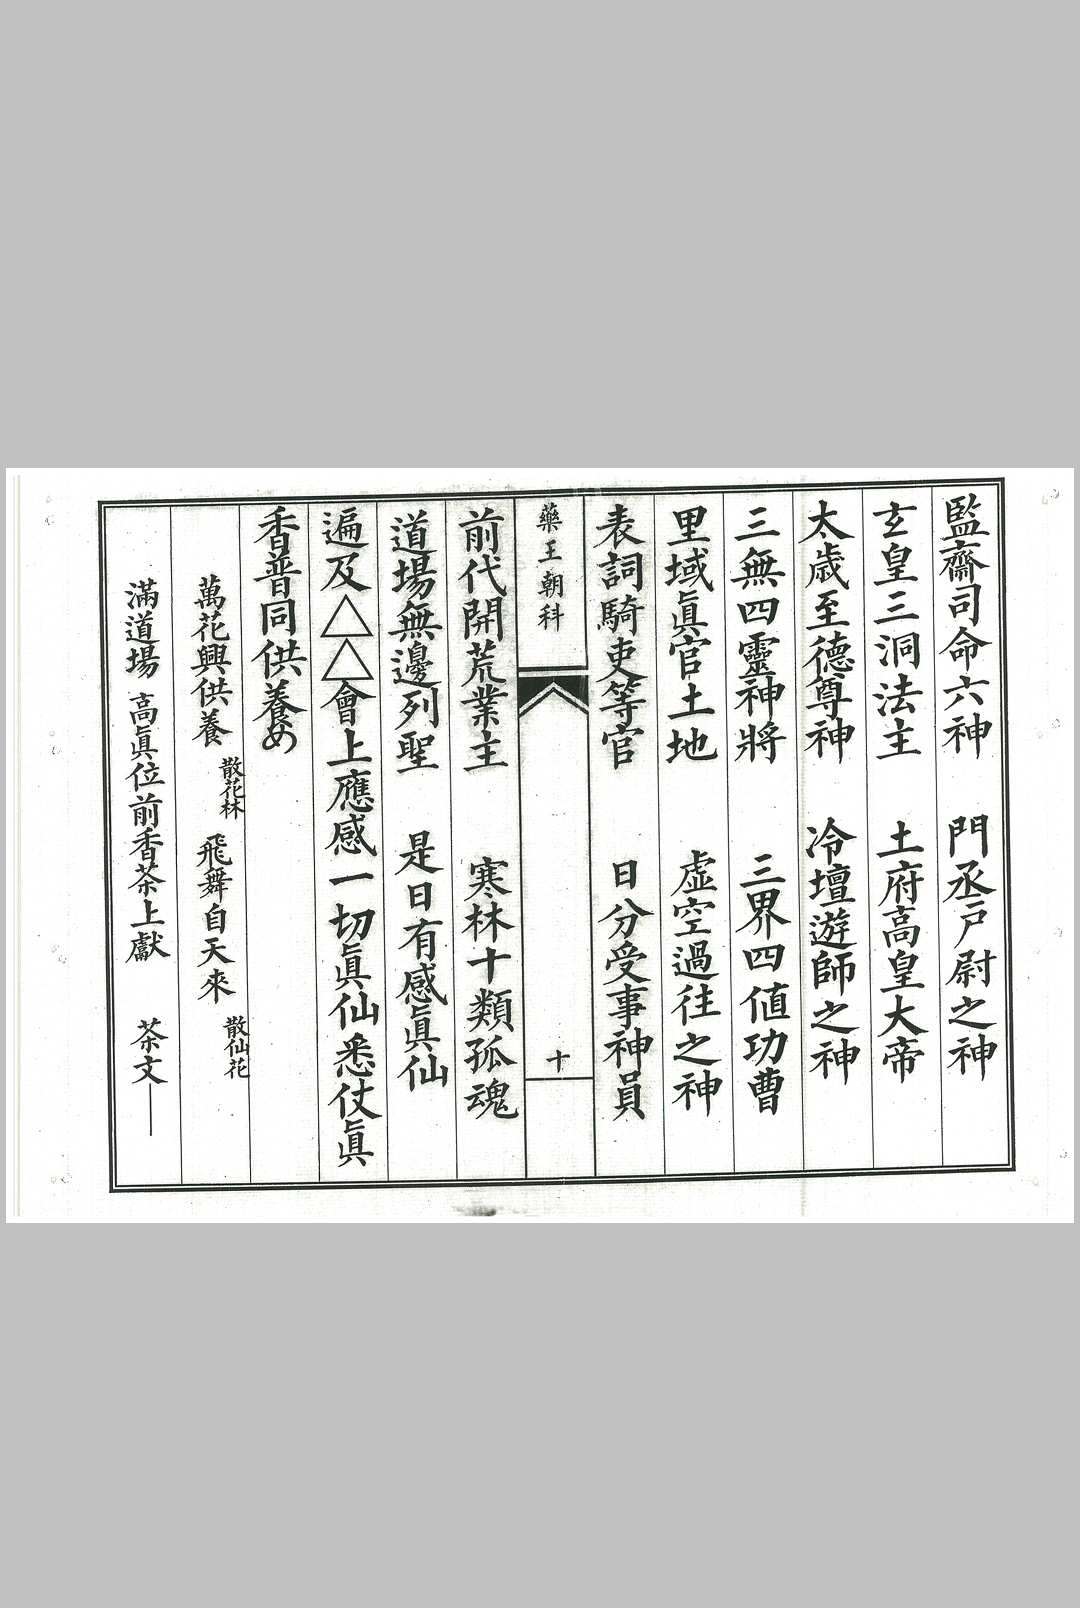 監齋司命六神　門丞戶尉之神
玄皇三洞法主　土府高皇大帝
太歲至德尊神　冷壇遊師之神
三無四靈神將　三界四值功曹
里域眞官土地　虛空過往之神
表詞騎吏等官　日分受事神員
藥王朝科　十
前代開荒業主　寒林十類孤魂
道場無邊列聖　是日有感眞仙
遍及△△會上應感一切眞仙悉仗眞
香普同供養め
萬花興供養　散花林　飛舞自天來　散仙花
滿道場　高眞位前香茶上獻　茶文——